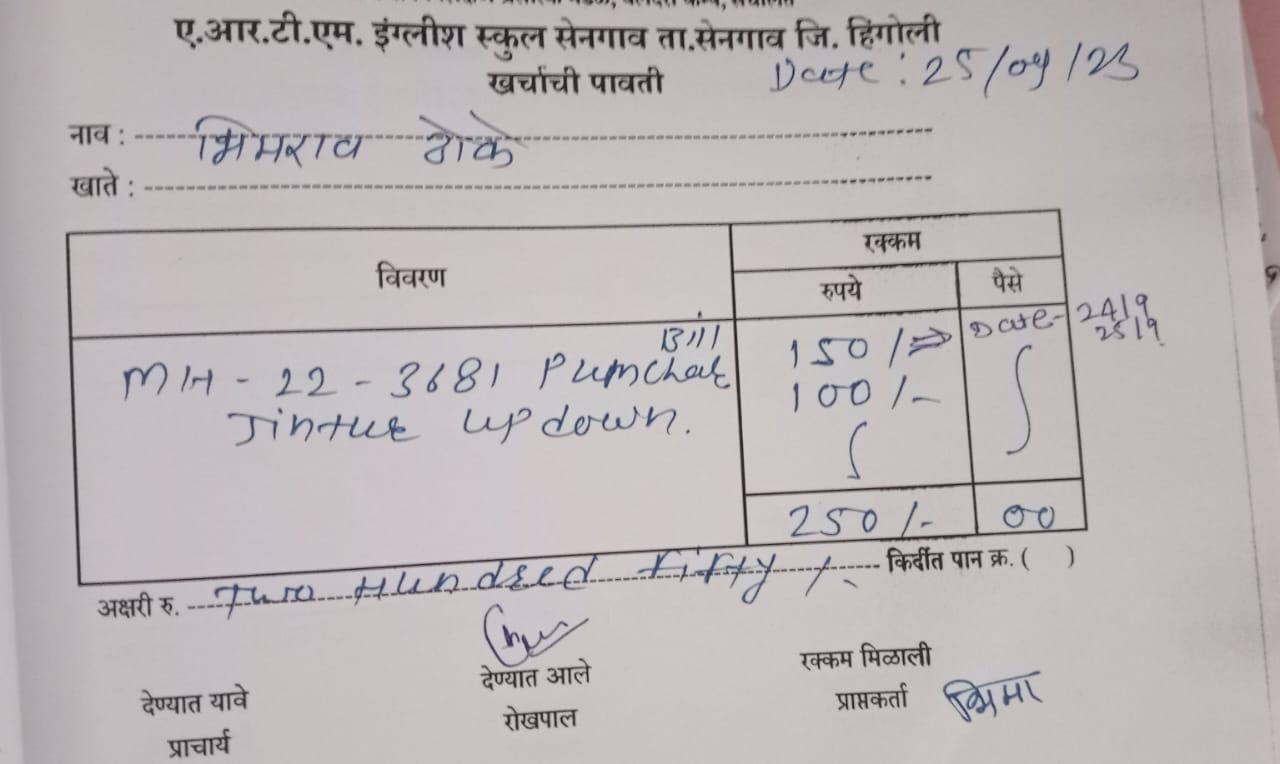 ए.आर.टी.एम. इंग्लीश स्कुल सेनगाव ता.सेनगाव जि. हिंगोली
खर्चाची पावती
Date : 25/09/23
नाव : भिमराव शेके
खाते :
विवरण
रक्कम
रुपये
पैसे
Bill
MH - 22 - 3681 Pumchar
150/- ⇒
Date - 24/9
25/9
Jintur up down.
100/-
250/-
00
अक्षरी रु. Two Hundred Fifty /-
किर्दीत पान क्र. ( )
देण्यात यावे
प्राचार्य
देण्यात आले
रोखपाल
रक्कम मिळाली
प्राप्तकर्ता भिमा